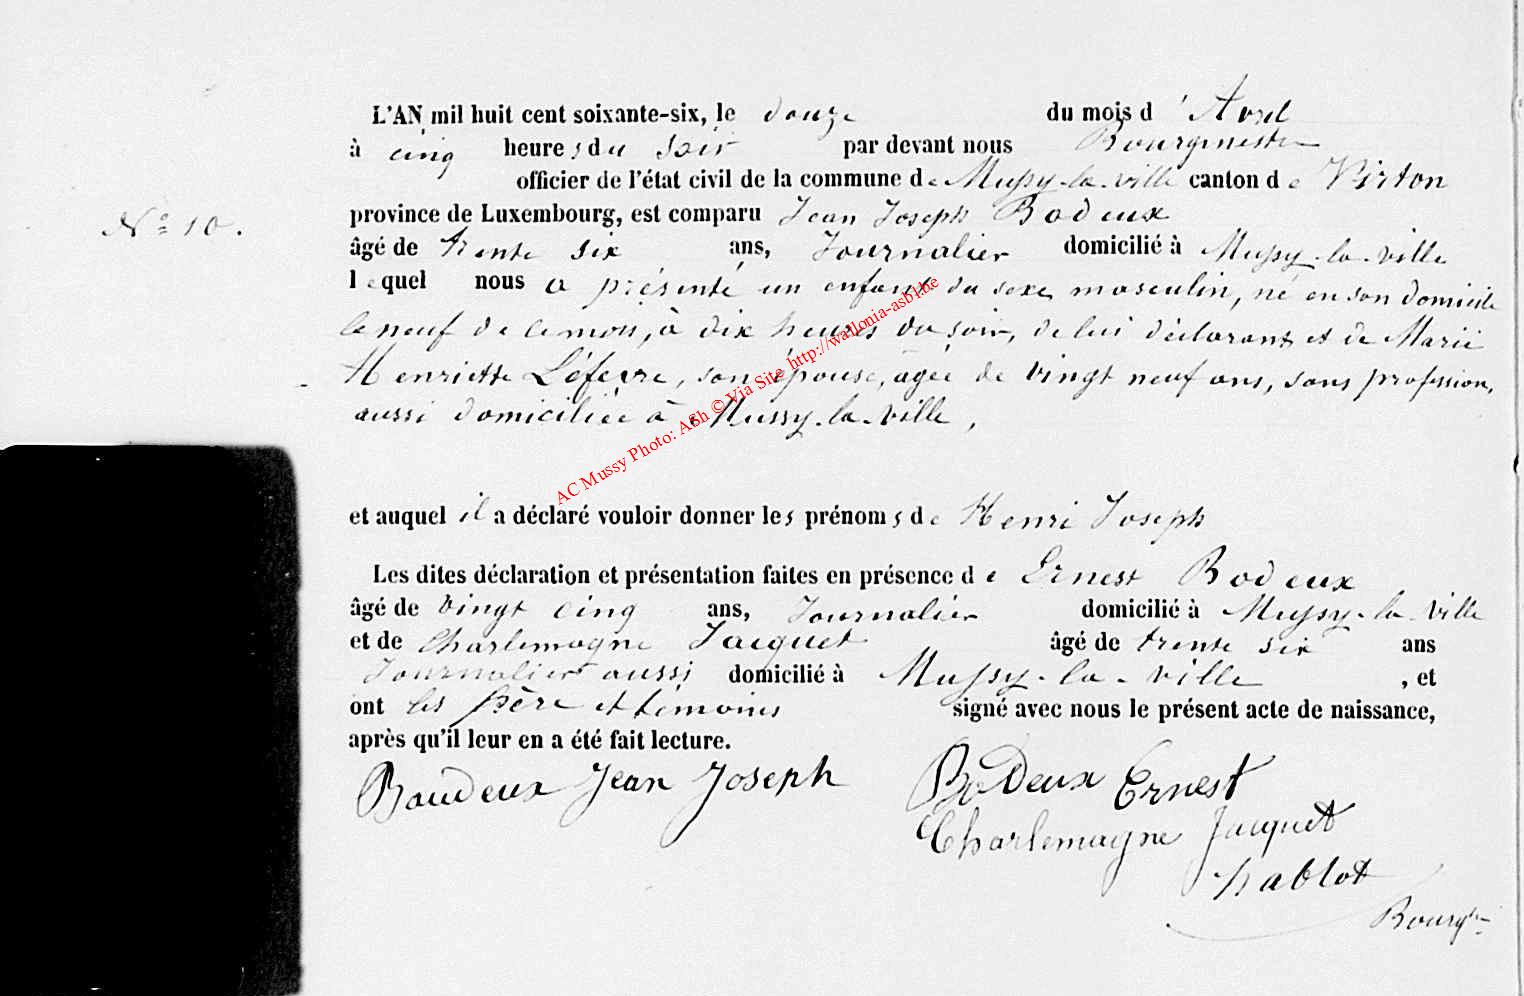 L'AN mil huit cent soixante-six, le douze du mois d'Avril
à cinq heures du soir par devant nous Bourgmestre
officier de l'état civil de la commune de Mussy-la-ville canton de Virton
N° 10.
province de Luxembourg, est comparu Jean Joseph Bodeux
âgé de trente six ans, Journalier domicilié à Mussy-la-ville
lequel nous a présenté un enfant du sexe masculin, né en son domicile
le neuf de ce mois, à dix heures du soir, de lui déclarant et de Marie
Henriette Léfevre, son épouse, agée de vingt neuf ans, sans profession,
aussi domiciliée à Mussy-la-ville,
AC Mussy Photo: ASh © Via Site http://wallonia-asbl.be
et auquel il a déclaré vouloir donner les prénoms de Henri Joseph
Les dites déclaration et présentation faites en présence de Ernest Bodeux
âgé de vingt cinq ans, Journalier domicilié à Mussy-la-ville
et de Charlemagne Jacquet âgé de trente six ans
Journalier aussi domicilié à Mussy-la-ville, et
ont les père et témoins signé avec nous le présent acte de naissance,
après qu'il leur en a été fait lecture.
Baudeux Jean Joseph BoDeux Ernest
Charlemagne Jacquet
hablot
Bourgtre